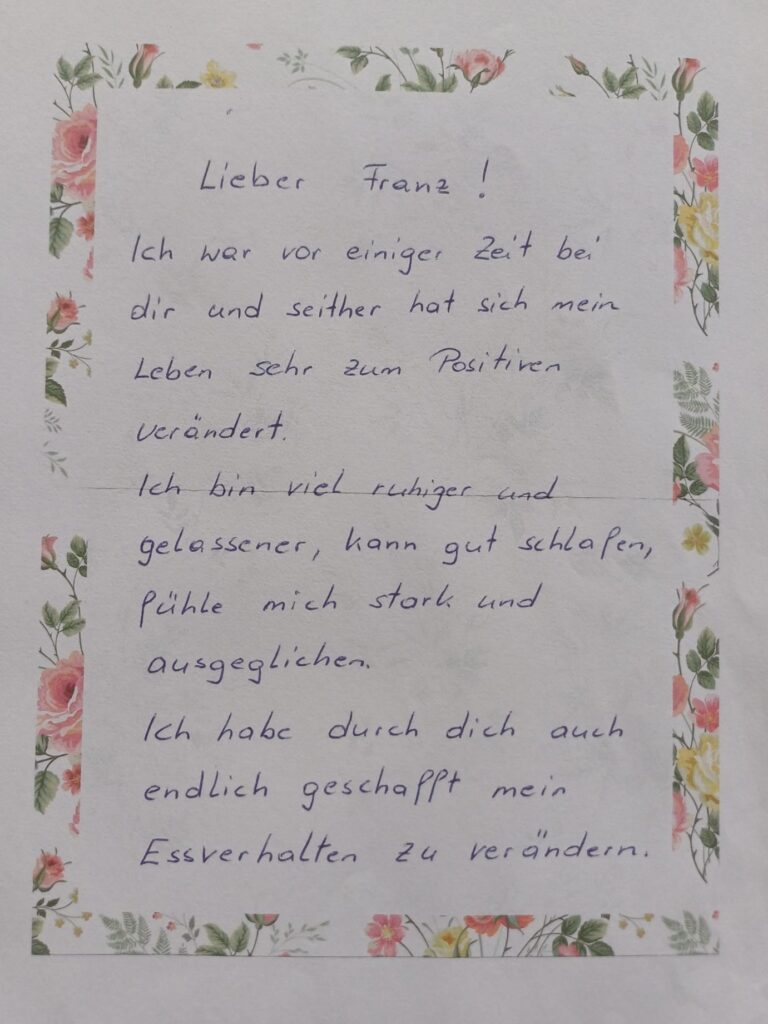 Lieber Franz!
Ich war vor einiger Zeit bei
dir und seither hat sich mein
Leben sehr zum Positiven
verändert.
Ich bin viel ruhiger und
gelassener, kann gut schlafen,
fühle mich stark und
ausgeglichen.
Ich habe durch dich auch
endlich geschafft mein
Essverhalten zu verändern.